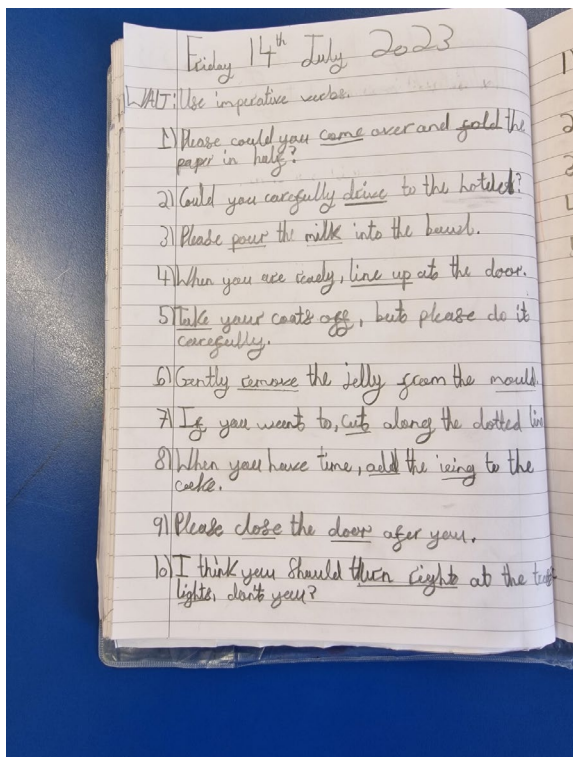 Friday 14th July 2023
WALT: Use imperative verbs.
1) Please could you come over and fold the
paper in half?
2) Could you carefully drive to the hotel?
3) Please pour the milk into the bowl.
4) When you are ready, line up at the door.
5) Take your coats off, but please do it
carefully.
6) Gently remove the jelly from the mould.
7) If you want to, cut along the dotted line
8) When you have time, add the icing to the
cake.
9) Please close the door afer you.
10) I think you should turn right at the
lights, don't you?